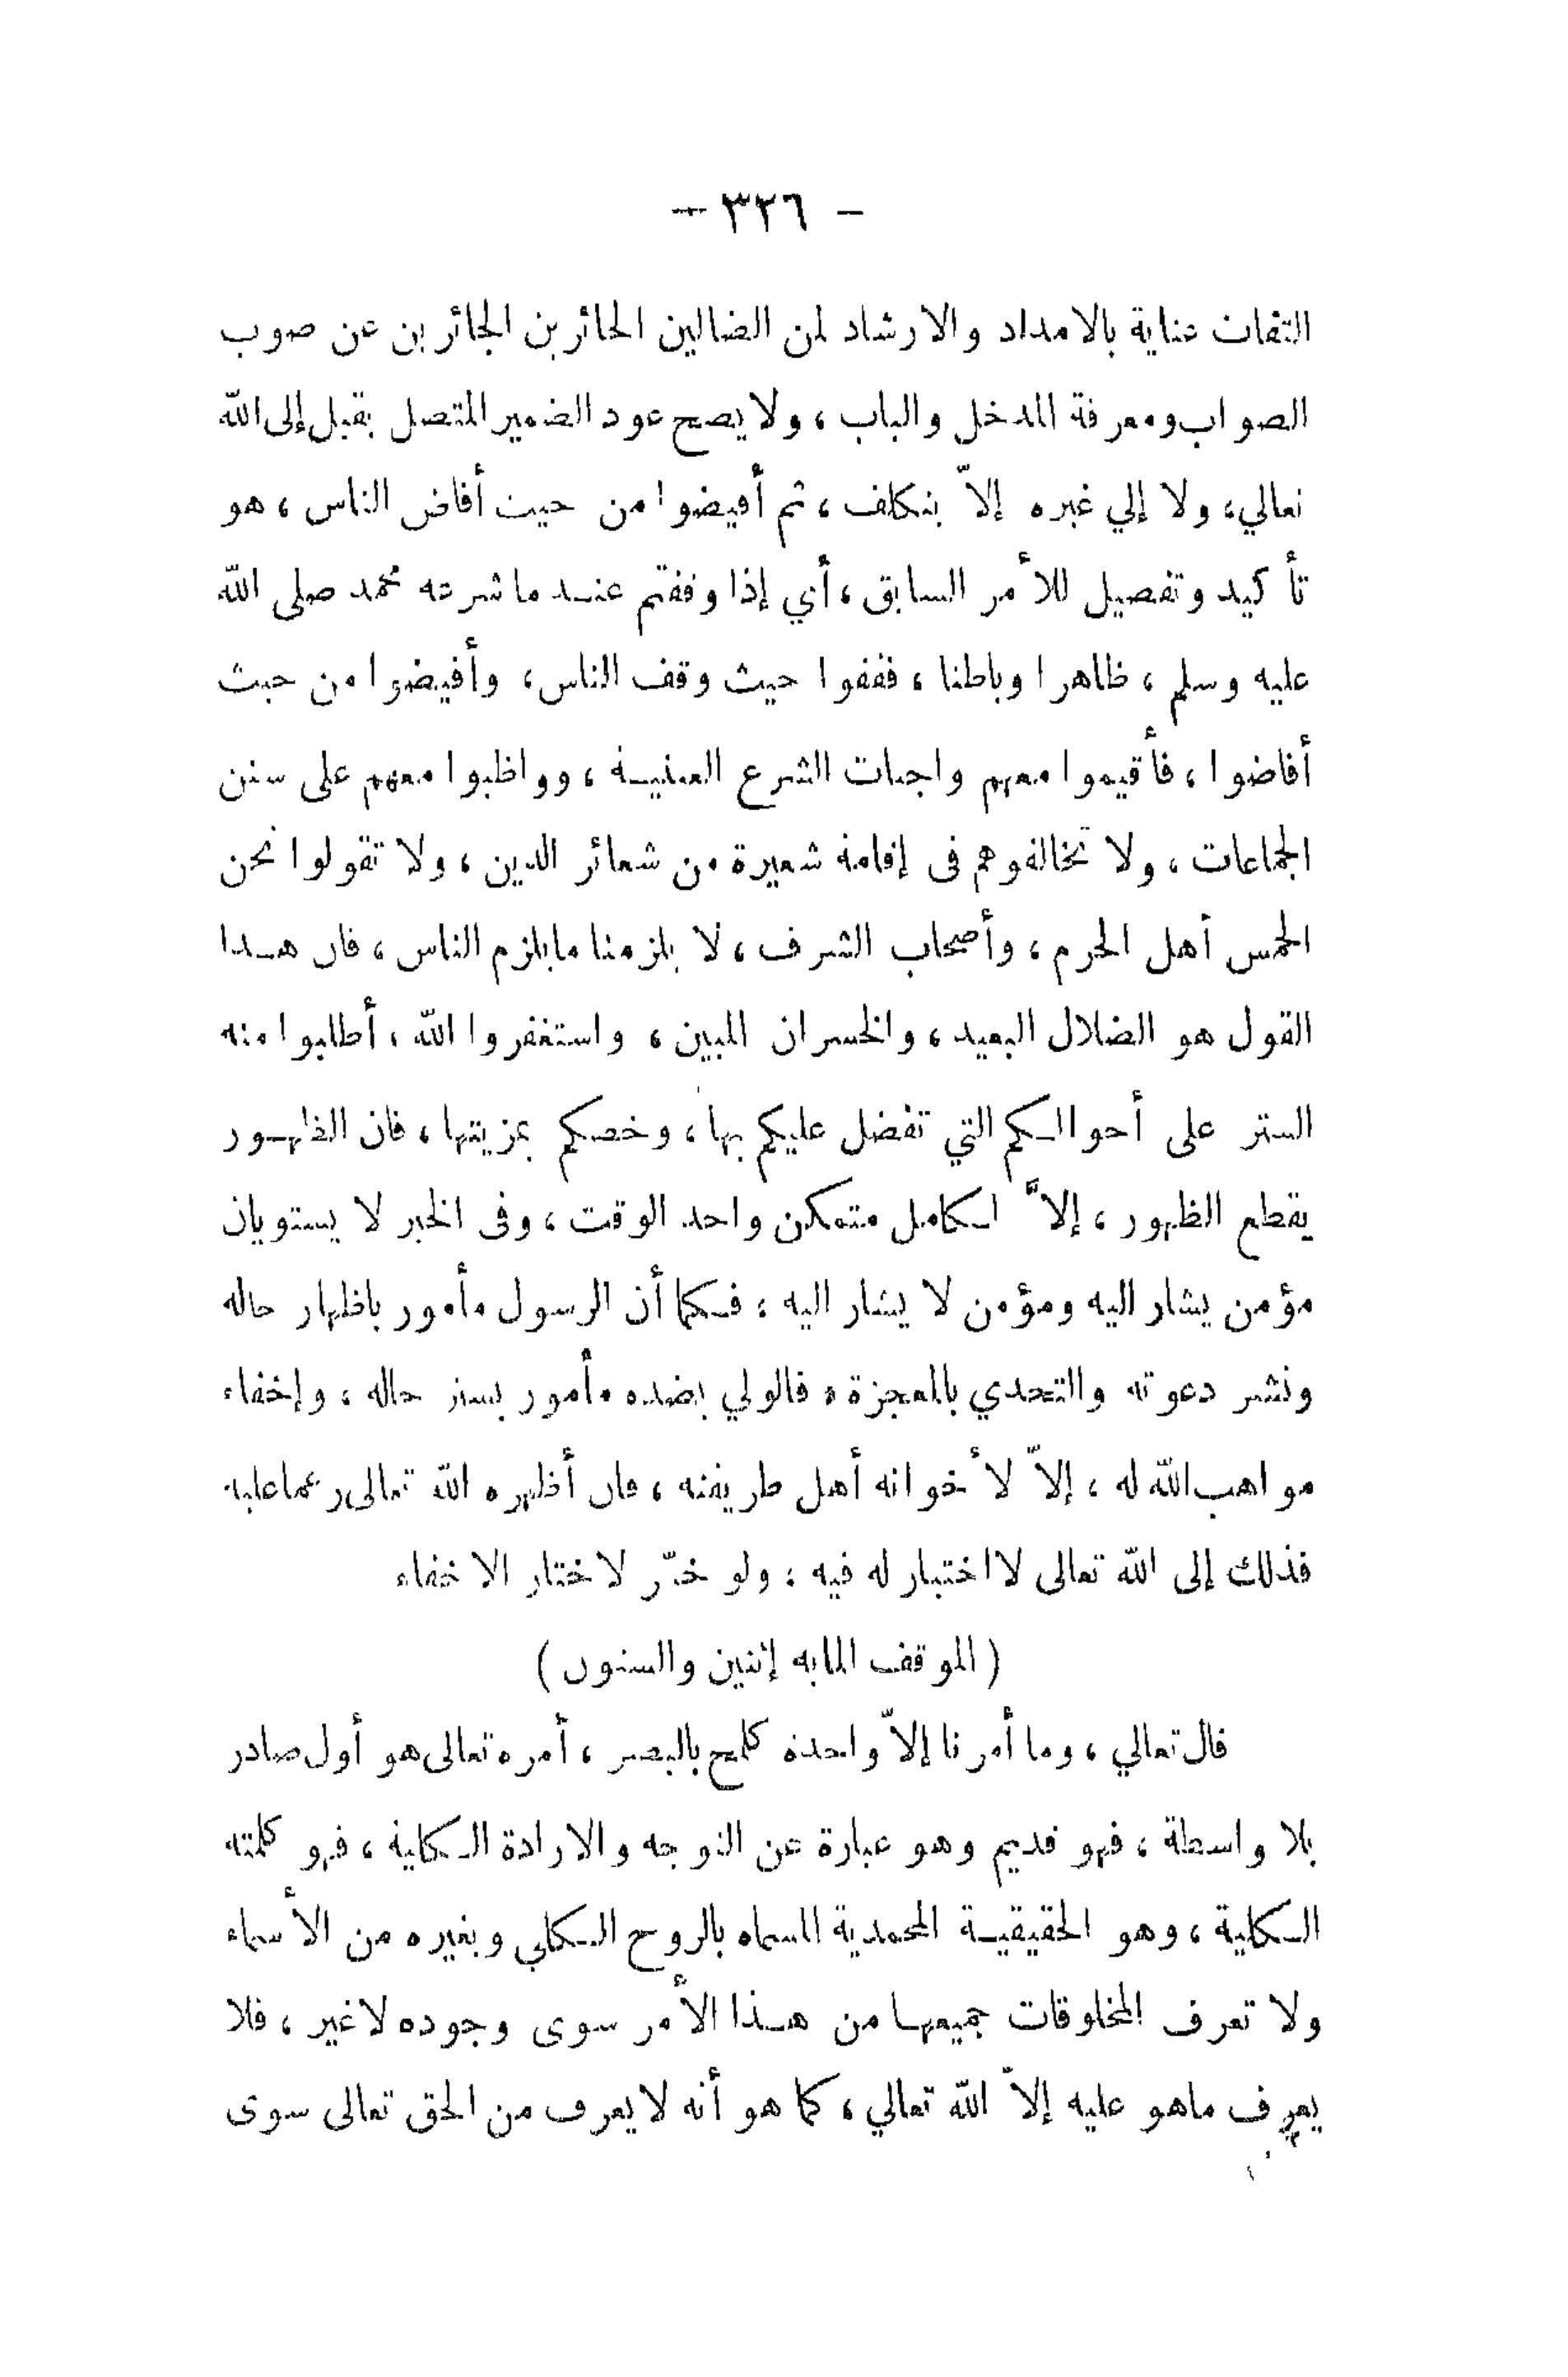 — ٣٢٦ —
التفات عناية بالامداد والارشاد لمن الضالين الحائرين الجائرين عن صوب
الصواب ومعرفة المدخل والباب ، ولا يصح عود الضمير المتصل بقبل إلى الله
تعالي، ولا إلي غيره إلاّ بتكلف ، ثم أفيضوا من حيث أفاض الناس ، هو
تأكيد وتفصيل للأمر السابق ، أي إذا وقفتم عنـد ما شرعه محمد صلى الله
عليه وسلم ، ظاهرا وباطنا ، فقفوا حيث وقف الناس، وأفيضوا من حيث
أفاضوا ، فأقيموا معهم واجبات الشرع العينيـة ، وواظبوا معهم على سنن
الجماعات ، ولا تخالفوهم فى إقامة شعيرة من شعائر الدين ، ولا تقولوا نحن
الحمس أهل الحرم ، وأصحاب الشرف ، لا يلزمنا ما يلزم الناس ، فان هـذا
القول هو الضلال البعيد ، والخسران المبين ، واستغفروا الله ، أطلبوا منه
الستر على أحوالـكم التي تفضل عليكم بها ، وخصكم بمزيتها ، فان الظهـور
يقطع الظهور ، إلاّ لـكامل متمكن واحد الوقت ، وفى الخبر لا يستويان
مؤمن يشار اليه ومؤمن لا يشار اليه ، فـكما أن الرسول مأمور باظهار حاله
ونشر دعوته والتحدي بالمعجزة ، فالولي بضده مأمور بستر حاله ، وإخفاء
مواهب الله له ، إلاّ لأخوانه أهل طريقته ، فان أظهره الله تعالى رغما عليه
فذلك إلى الله تعالى لا اختيار له فيه ، ولو خيّر لاختار الاخفاء
( الموقف المايه إثنين والستون )
قال تعالي ، وما أمرنا إلاّ واحدة كلمح بالبصر ، أمره تعالى هو أول صادر
بلا واسطة ، فهو قديم وهو عبارة عن التوجه والارادة الـكلية ، فهو كلمته
الـكلية ، وهو الحقيقيـة المحمدية المسماه بالروح الـكلي وبغيره من الأسماء
ولا تعرف المخلوقات جميعهـا من هـذا الأمر سوى وجوده لا غير ، فلا
يعرف ماهو عليه إلاّ الله تعالي ، كما هو أنه لا يعرف من الحق تعالى سوى